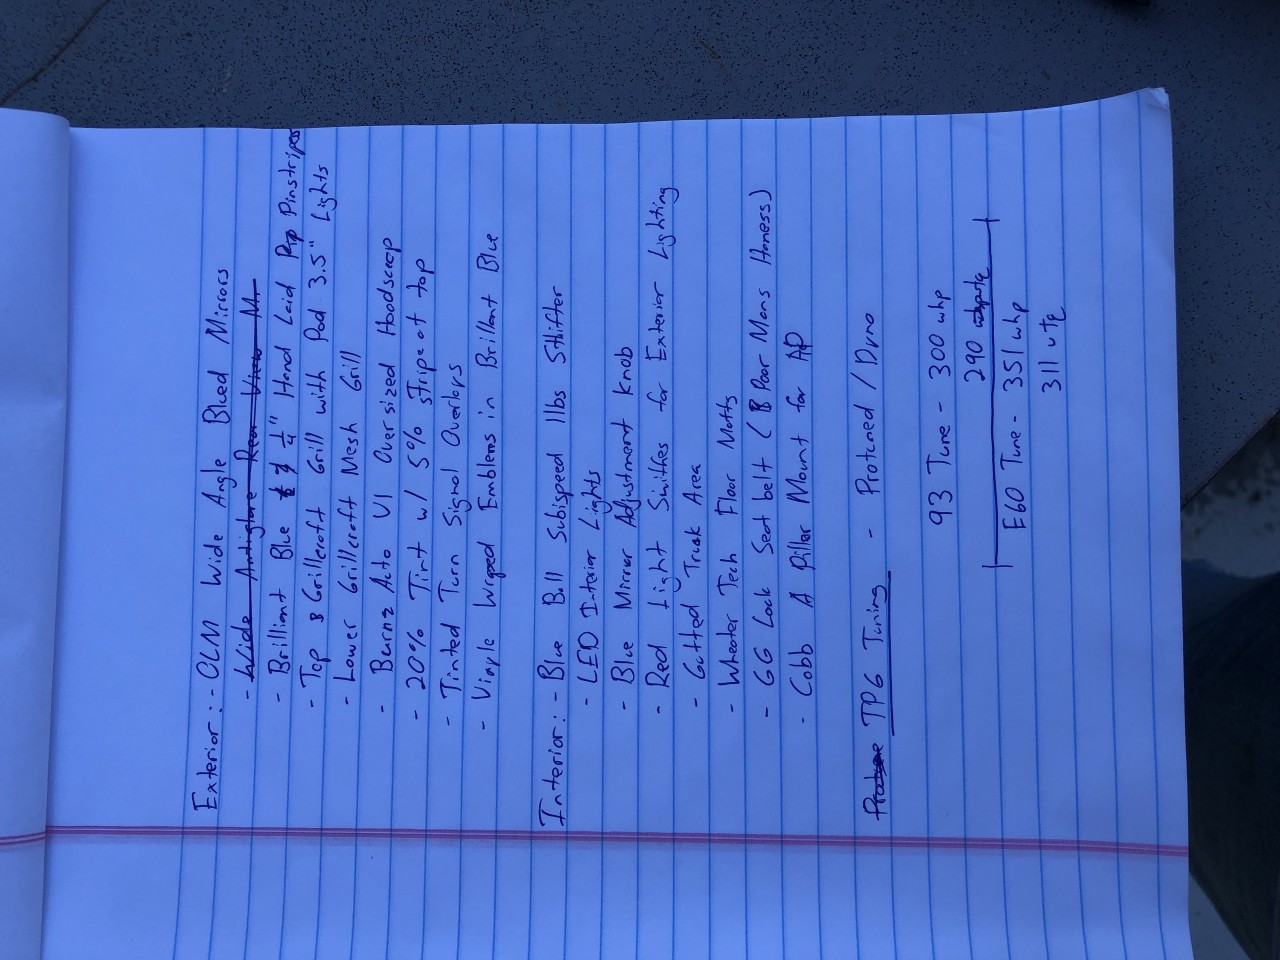 Exterior: - OLM Wide Angle Blued Mirrors
- Wide Antiglare Rear View M.
- Brilliant Blue 1/4" Hand Laid Pinstripes
- Top Grillcraft Grill with Pod 3.5" Lights
- Lower Grillcraft Mesh Grill
- Burnz Auto V1 Oversized Hoodscoop
- 20% Tint w/ 5% stripe at top
- Tinted Turn Signal Overlays
- Vinyle Wraped Emblems in Brillant Blue
Interior: - Blue Ball Subispeed 1lbs Sthifter
- LED Interior Lights
- Blue Mirror Adjustment Knob
- Red Light Swithes for Exterior Lighting
- Gutted Trunk Area
- Wheater Tech Floor Matts
- GG Lock Seat belt (Poor Mans Harness)
- Cobb A Piller Mount for AP
TPG Tuning - Protuned / Dyno
93 Tune - 300 whp
290
E60 Tune - 351 whp
311 wtq